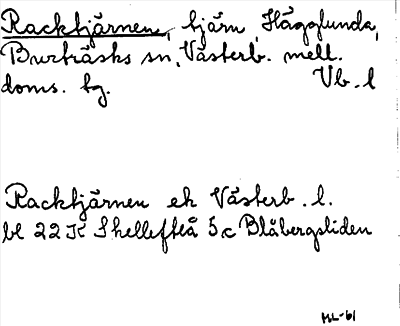 Racktjärnen, tjärn, Hägglunda,
Burträsks sn, Västerb. mell.
doms. tg. Vb. l
Racktjärnen ek Västerb. l.
bl 22 K Skellefteå 5c Blåbergsliden
ML-61